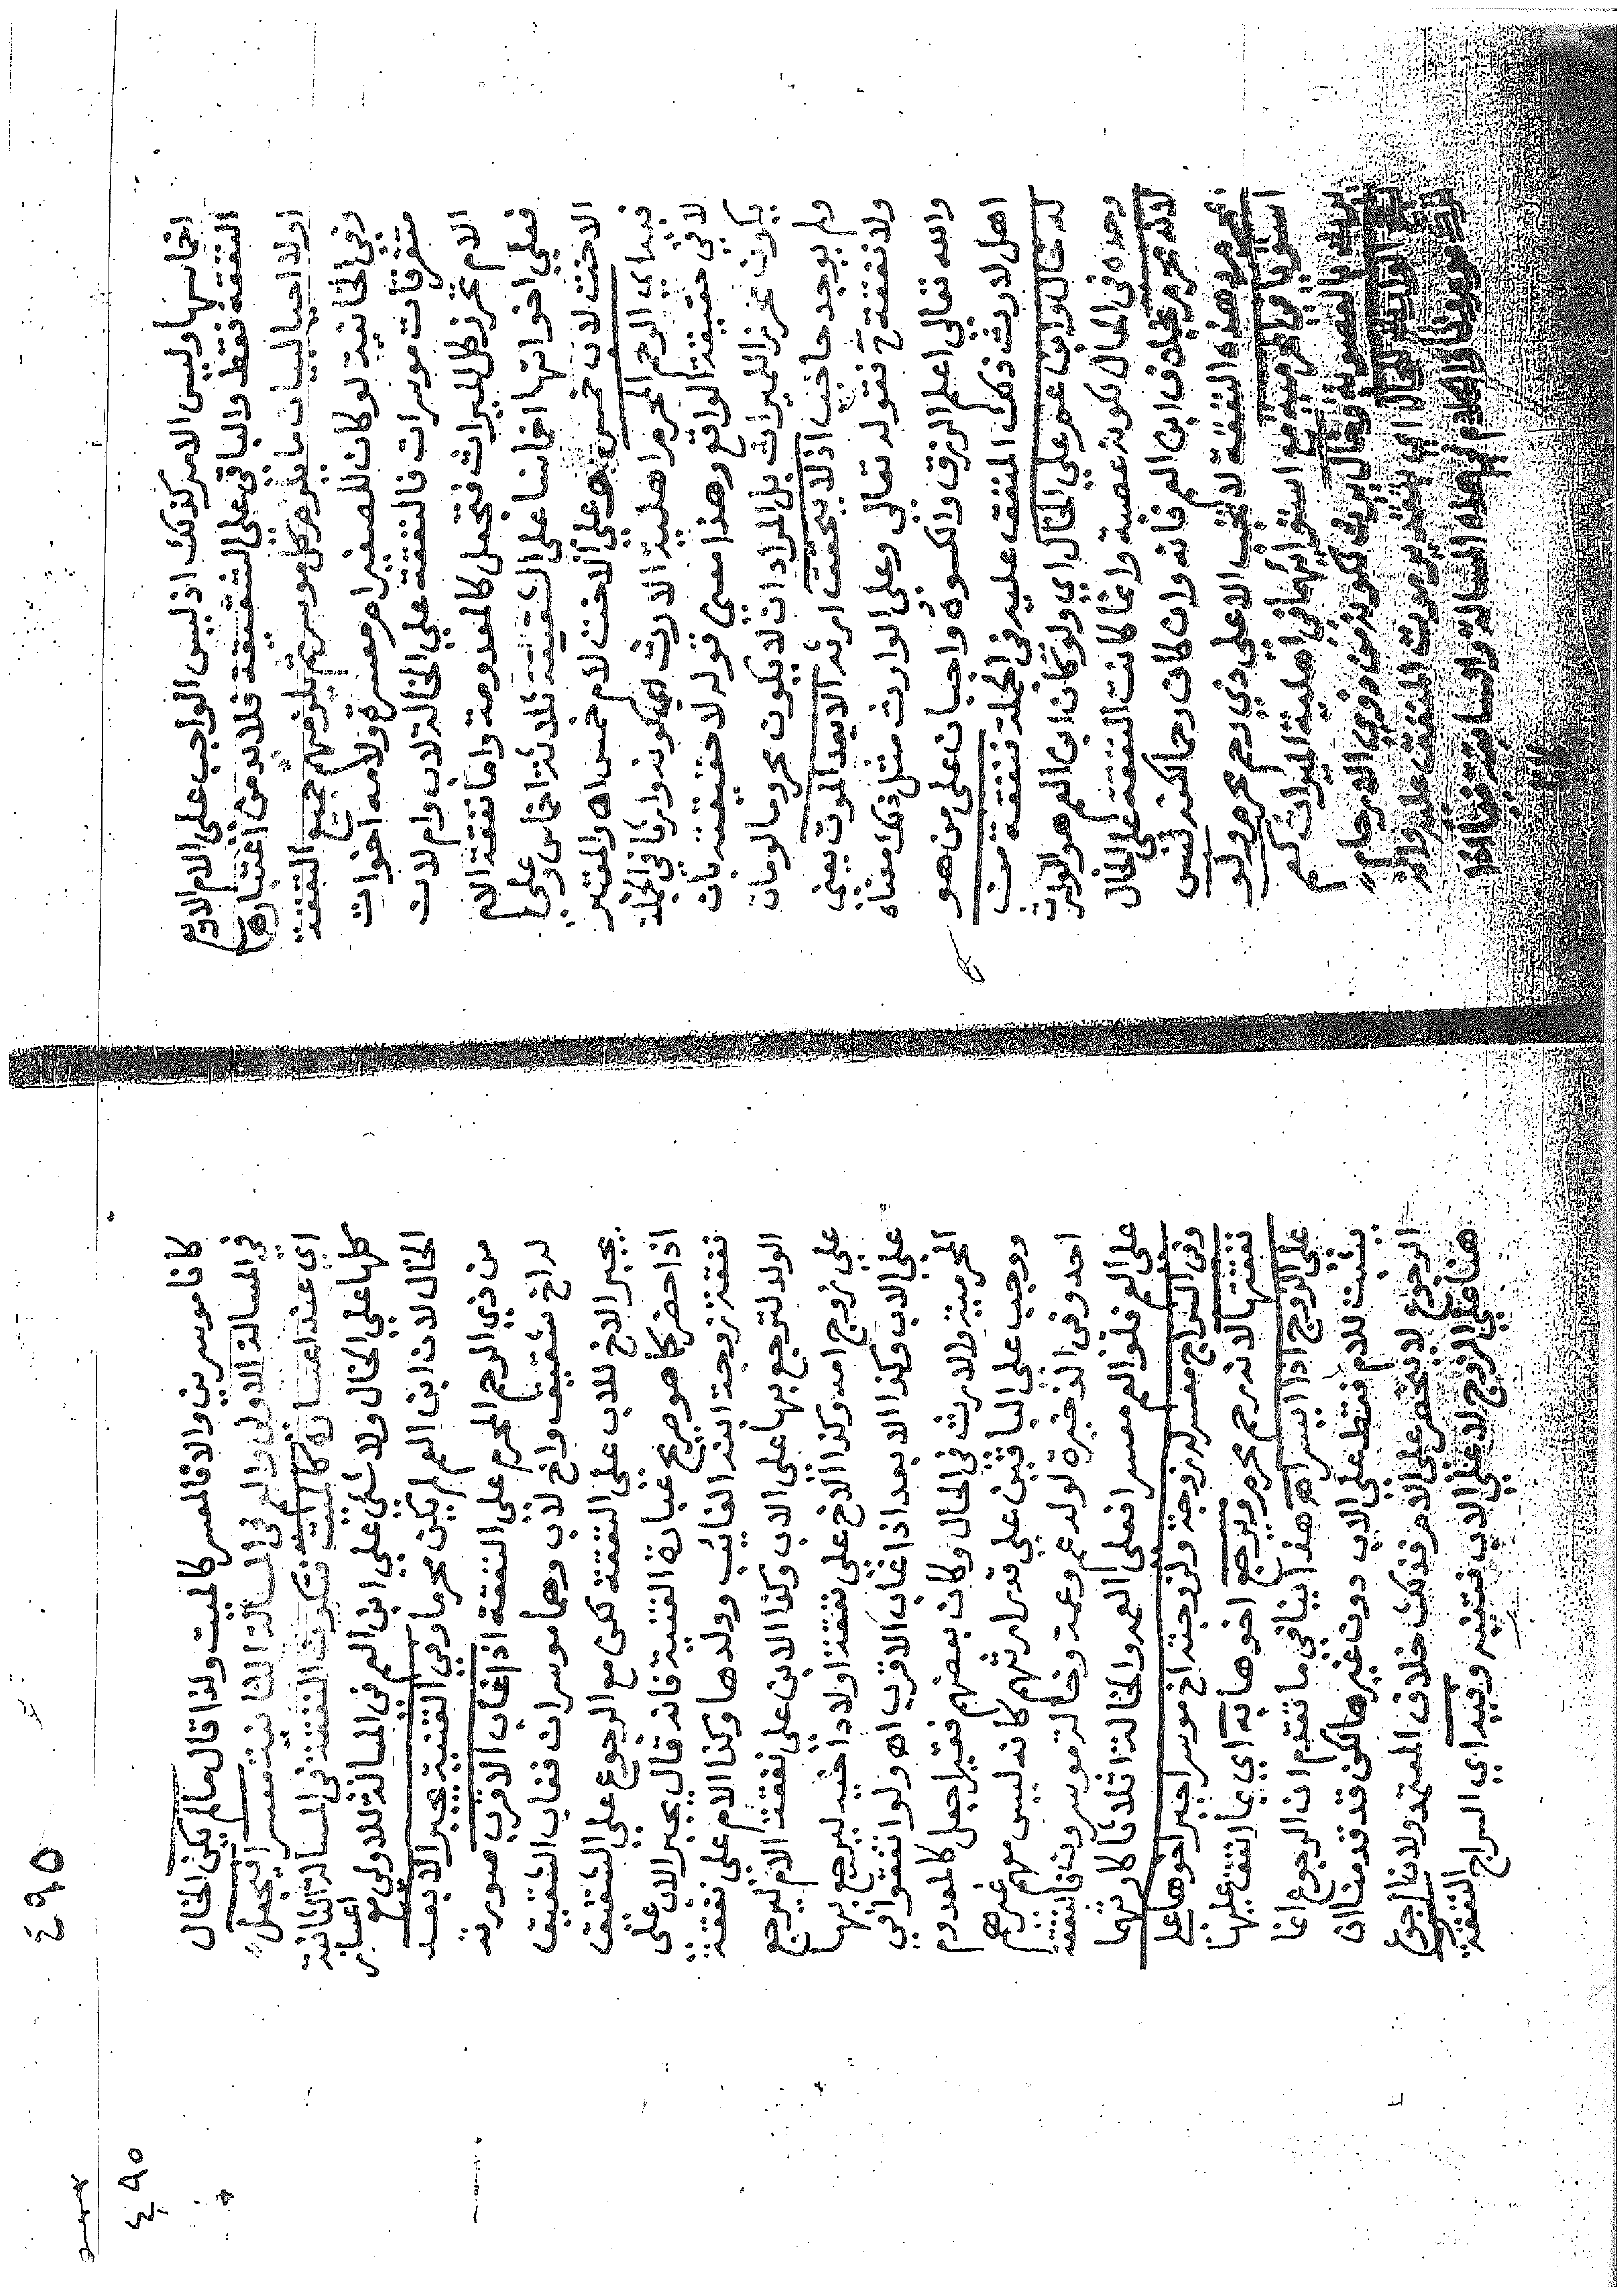 اخماسها وليس الامر كذلك اذ ليس الواجب على الام الاربع
النفقة فقط والباقي على الشقيقة فلا بد من اعتبارها
اولا احيا لبيان ما يلزم كل موسر ثم يلزمهم جميع النفقة
وفي الخانية لو كان للصغير ام معسرة ولامه اخوات
متفرقات موسرات فالنفقة على الخالة لاب وام لان
الام تحرز كل الميراث فتجعل كالمعدومة واما نفقة الام
فعلى اخواتها اخماسا على الشقيقة ثلاثة اخماس وعلى
الاخت لاب خمس وعلى الاخت لام خمس اه والمعتبر
فيه اي الرحم المحرم اهلية الارث اي كونه وارثا في الجملة
لا في حقيقة الواقع وهذا معنى قوله لا حقيقته بان
يكون محرزا للميراث بل المراد ان لا يكون محروما لو مات
ولم يوجد حاجب اذ لا يتحقق ارثه الا بعد الموت يعني
ولا نفقة ح فقوله تعالى وعلى الوارث مثل ذلك معناه
والله تعالى اعلم الرزق والكسوة واجبان على من هو
اهل لارث ذلك المنفق عليه في الجملة فنفقة من
له خال وابن عم على الخال اي ولو كان ابن العم هو الوارث
وحده في الحال لكونه عصبة وانما كانت النفقة على الخال
لانه محرم بخلاف ابن العم فانه وان كان رحما لكنه ليس
بمحرم وهذه النفقة لا تجب الا على ذي رحم محرم ولو
استويا في المحرمية مع استوائهما في اهلية الميراث كعم
يرث بالعصوبة وخال يرث لكونه من ذوي الارحام
رجح الوارث للحال اي بتقدير موت المنفق عليه
موروثا والكلام في هذه المسالة والسابقة فيما اذا
كانا
٤٩٥
٤٩٥
كانا موسرين والا فالمعسر كالميت ولذا قال ما لم يكن الخال
في المسالة الاولى والعم في المسالة الثانية معسرا فيجعل
اي عند اعساره كالميت فتكون النفقة في المسالة الثانية
كلها على الخال ولا شئ على ابن العم في المسالة للاولى مع اعسار
الخال لان ابن العم لم يكن محرما وفي القنية يجبر الابعد
من ذي الرحم المحرم على النفقة اذا غاب الاقرب صورته
له اخ شقيق واخ لاب وهما موسران فغاب الشقيق
يجبر الاخ للاب على النفقة لكن مع الرجوع على الشقيق
اذا حضر كما هو صريح عبارة القنية فانه قال يجبر الاب على
نفقة زوجة ابنه الغايب وولدها وكذا الام على نفقة
الولد لترجع بها على الاب وكذا الابن على نفقة الام ليرجع
على زوج امه وكذا الاخ على نفقة اولاد اخيه ليرجع بها
على الاب وكذا الابعد اذا غاب الاقرب اه ولو اتفقوا في
المحرمية والارث في الحال وكان بعضهم فقيرا جعل كالمعدوم
ووجب على الباقين على قدر ارثهم كانه ليس معهم غيرهم
احد وفي الذخيرة لو له عم وعمة وخالة موسرون فالنفقة
على العم فلو العم معسرا فعلى العمة والخالة اثلاثا كارثهما
وفي السراج معسر له زوجة ولزوجته اخ موسر اجبر اخوها على
نفقتها لانه رحم محرم ويرجع اخوها به اي بما انفق عليها
على الزوج اذا ايسر اه هذا ينافي ما تقدم ان الرجوع انما
يثبت للام فقط على الاب دون غيرها لكن قد قدمنا ان
الرجوع لا يقتصر على الام فذلك خلاف المعتمد ولانا
هنا على الزوج لا على الاب فتنبه وفيه اي السراج النفقة